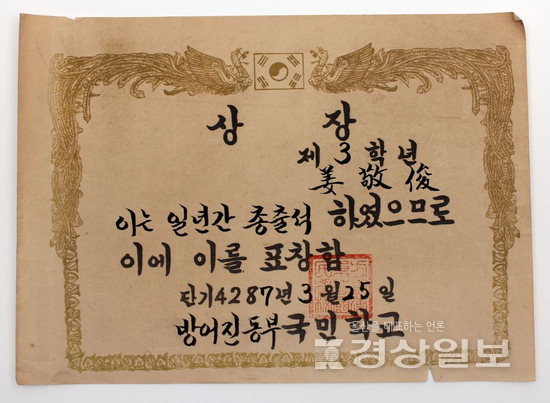 상장
제 3 학년
姜敬俊
이는 일년간 종출석 하였으므로
이에 이를 표창함
단기4287년 3월25일
방어진동부국민학교
경상일보